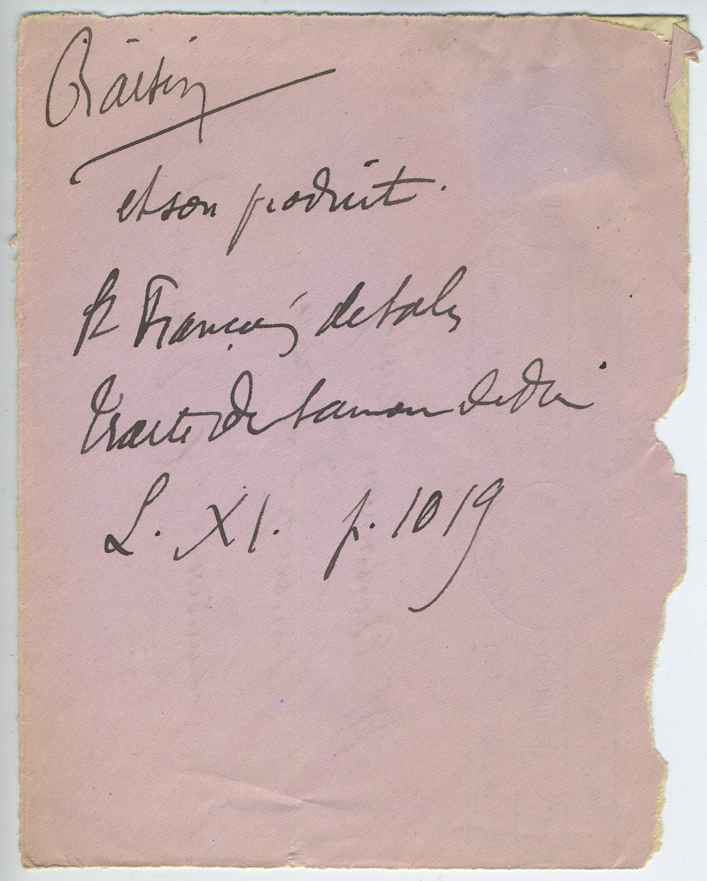 Raisin
et son produit.
St François de Sales
Traité de l'amour de Dieu
L. XI. p. 1019